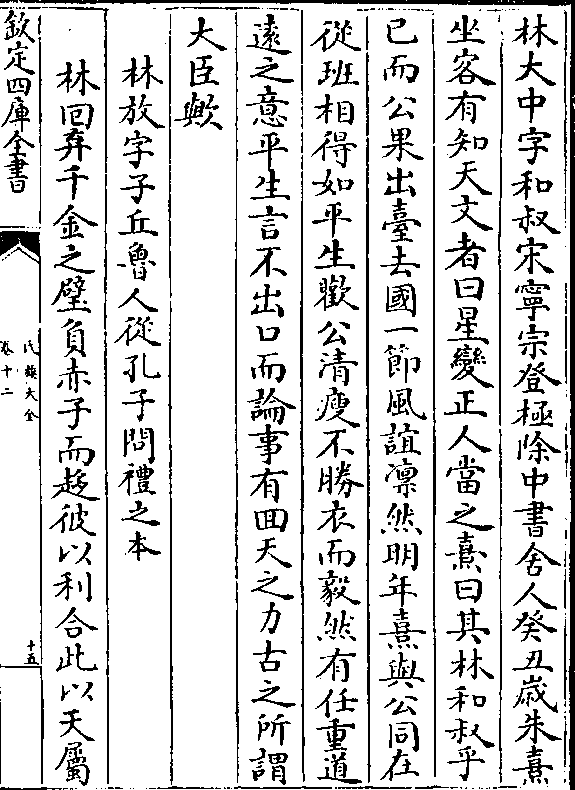 林大中字和叔宋寧宗登極除中書舍人癸丑歲朱熹
坐客有知天文者曰星變正人當之熹曰其林和叔乎
已而公果出臺去國一節風誼凛然明年熹與公同在
從班相得如平生歡公清瘦不勝衣而毅然有任重道
遠之意平生言不出口而論事有回天之力古之所謂
大臣歟
林放字子丘魯人從孔子問禮之本
林回弃千金之璧負赤子而趍彼以利合此以天屬
欽定四庫全書
氏族大全
卷十二
十五